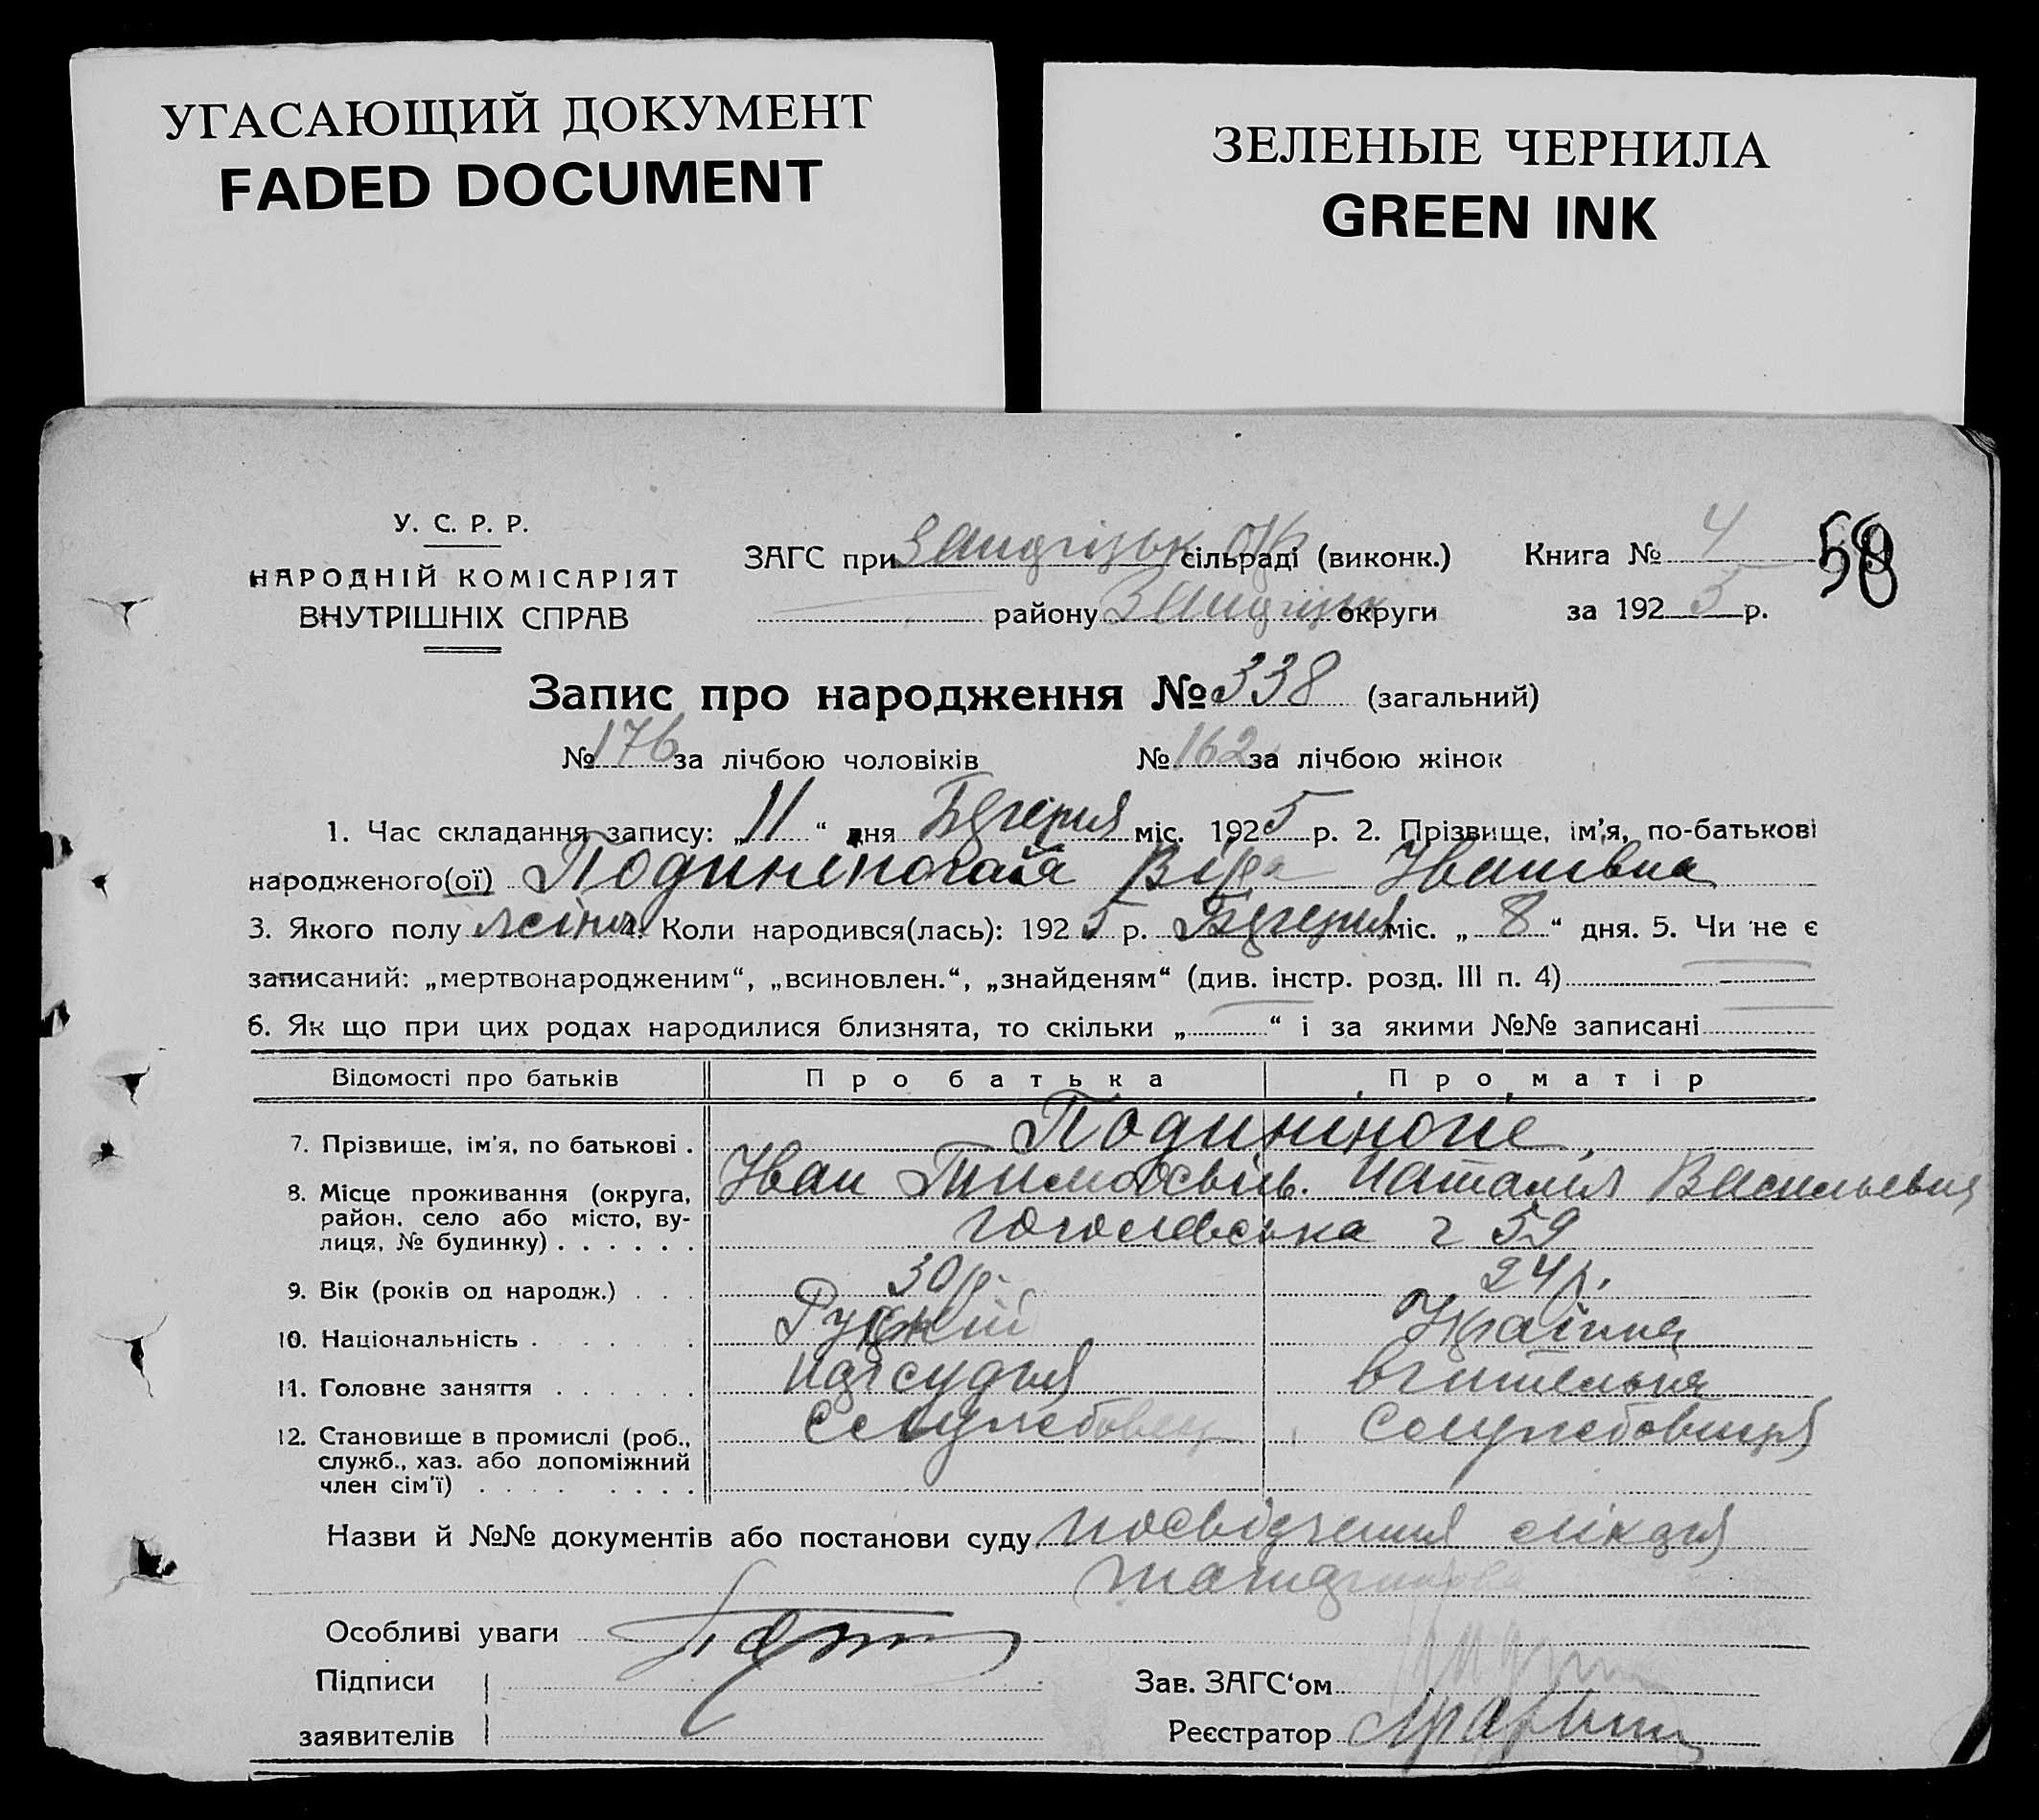 УГАСАЮЩИЙ ДОКУМЕНТ
FADED DOCUMENT
ЗЕЛЕНЫЕ ЧЕРНИЛА
GREEN INK
У. С. Р. Р.
НАРОДНІЙ КОМІСАРІЯТ
ВНУТРІШНІХ СПРАВ
ЗАГС при сільраді (виконк.)
району округи
Книга № 4
за 1925 р.
58
Запис про народження № 338 (загальний)
№ 176 за лічбою чоловіків № 162 за лічбою жінок
1. Час складання запису: „11“ дня міс. 1925 р. 2. Прізвище, ім’я, по-батькові
народженого(ої) Віра Іванівна
3. Якого полу жіноч. Коли народився(лась): 1925 р. міс. „8“ дня. 5. Чи не є
записаний: „мертвонародженим“, „всиновлен.“, „знайденям“ (див. інстр. розд. III п. 4)
6. Як що при цих родах народилися близнята, то скільки „ “ і за якими №№ записані
Відомості про батьків Про батька Про матір
7. Прізвище, ім’я, по батькові .
Іван Наталія Васильевна
8. Місце проживання (округа,
район, село або місто, ву-
лиця, № будинку) . . . . . .
Гоголевська 2 59
9. Вік (років од народж.) . . . 30 р. 24 р.
10. Національність . . . . . . Руський Українка
11. Головне заняття . . . . . . нарсудья вчителька
12. Становище в промислі (роб.,
служб., хаз. або допоміжний
член сім’ї) . . . . . . . .
Службовець Службовиця
Назви й №№ документів або постанови суду посвідчення лікаря
Особливі уваги
Підписи
заявителів
Зав. ЗАГС‘ом
Реєстратор